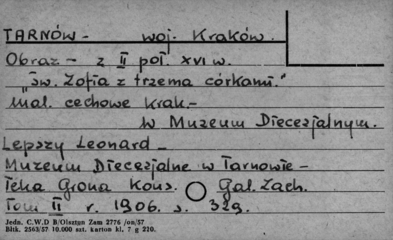 TARNÓW – woj. Kraków.
Obraz – z II poł. XVI w.
"Św. Zofia z trzema córkami."
Mal. cechowe krak. –
w Muzeum Diecezjalnym.
Lepszy Leonard –
Muzeum Diecezjalne w Tarnowie –
Teka Grona Kons. Gal. Zach.
Tom II r. 1906. s. 329.
Jedn. C.W.D B/Olsztyn Zam 2776 /on/57
Bltk. 2563/57 10.000 szt. karton kl. 7 g 220.